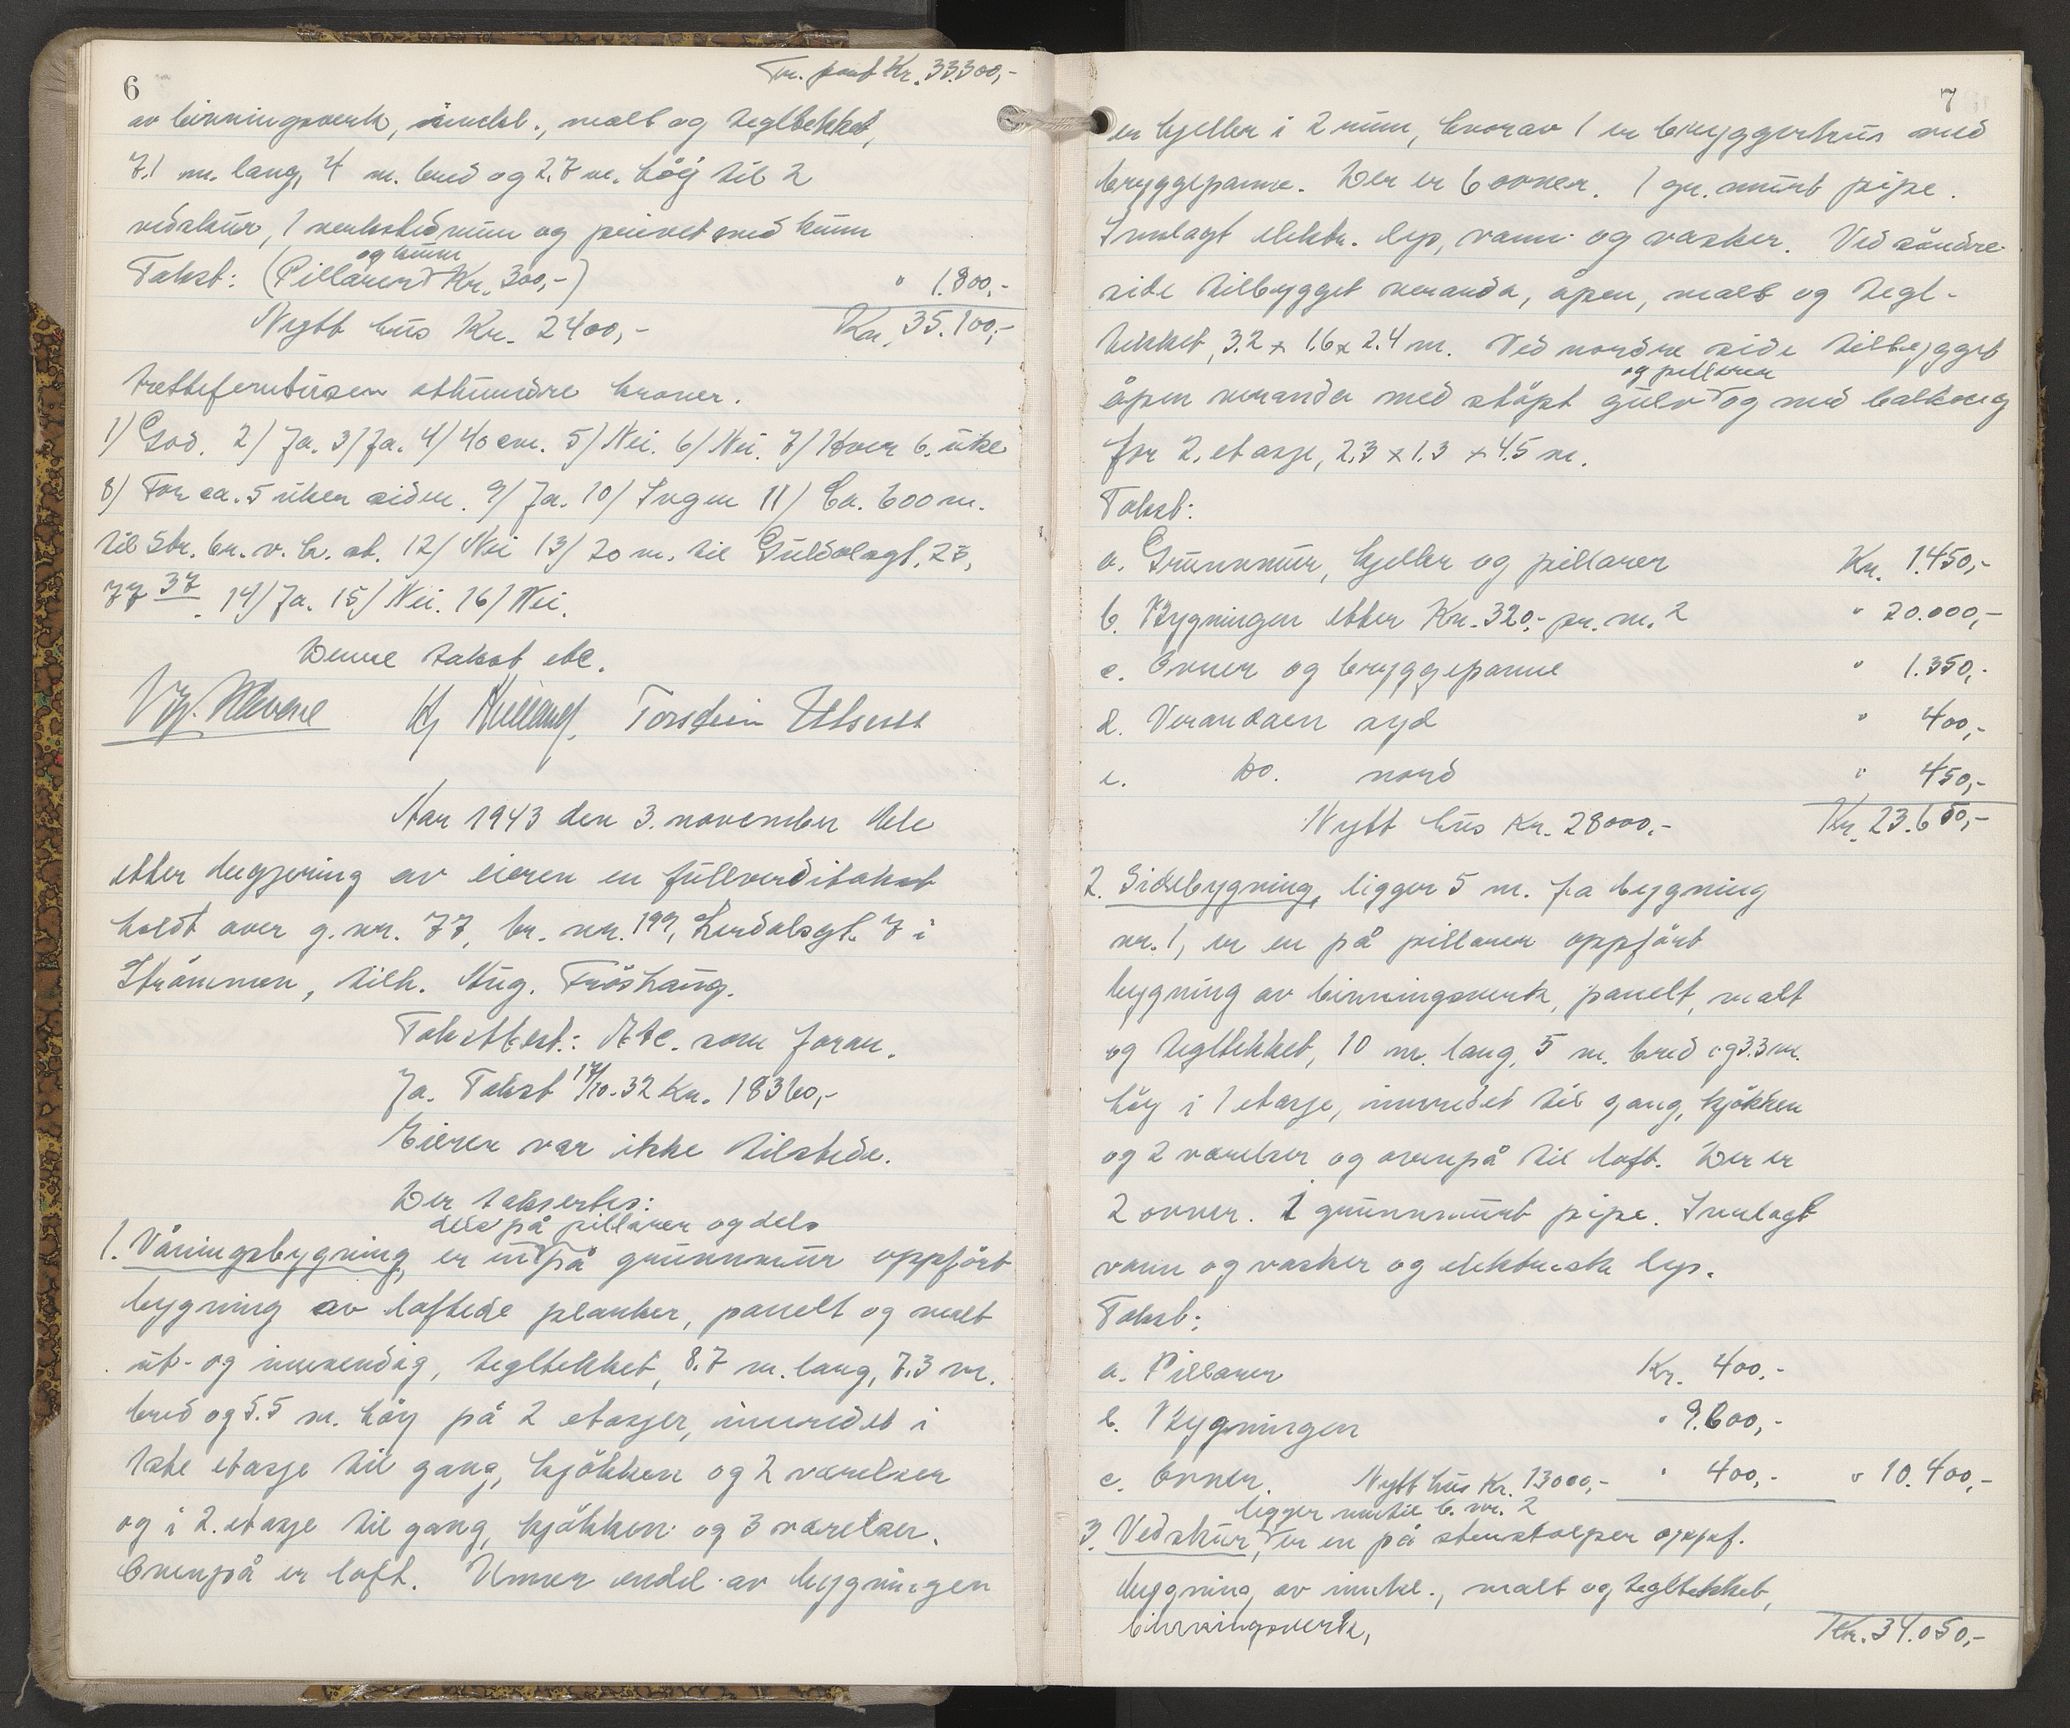 6
Tr. port Kr. 33.300,-
av binningsverk, innkl., malt og tegltekket,
7.1 m. lang, 4 m. bred og 2.7 m. höj til 2
vedskur, 1 verkstedrum og privet med kum
og kum
Takst: (Pillarer Kr. 300,-) " 1.800,-
Nytt hus Kr. 2400,- Kr. 35.100,-
trettefemtusen etthundre kroner.
1) God. 2) Ja. 3) Ja. 4) 40 cm. 5) Nei. 6) Nei. 7) Hver 6. uke
8) For ca. 5 uker siden. 9) Ja. 10) Ingen 11) Ca. 600 m.
til Str. br. v. h. st. 12) Nei 13) 20 m. til Guldalsgt. 23,
77 37. 14) Ja. 15) Nei. 16) Nei.
Denne takst etc.
Torstein
Aar 1943 den 3. november ble
etter begjering av eieren en fullverditakst
holdt over g. nr. 77, br. nr. 199, Lerdalsgt. 7 i
Strömmen, tilh. Aug. Fröshaug.
Takstbest.: Etc. som foran.
Ja. Takst 17/10.32 Kr. 18360,-
Eieren var ikke tilstede.
Der taksertes:
dels på pillarer og dels
1. Våningsbygning, er en på grunnmur oppfört
bygning av laftede planker, panelt og malt
ut- og innvendig, tegltekket, 8.7 m. lang, 7.3 m.
bred og 5.5 m. höy på 2 etasjer, innredet i
1ste etasje til gang, kjökken og 2 værelser
og i 2. etasje til gang, kjökken og 3 værelser.
Ovenpå er loft. Under endel av bygningen
7
er kjeller i 2 rum, hvorav 1 er bryggerhus med
bryggepanne. Der er 6 ovner. 1 gr. murt pipe.
Innlagt elektr. lys, vann og vasker. Ved söndre
side tilbygget veranda, åpen, malt og tegl-
tekket, 3.2 x 1.6 x 2.4 m. Ved nordre side tilbygget
og pillarer
åpen veranda med stöpt gulv og med balkong
for 2. etasje, 2.3 x 1.3 x 4.5 m.
Takst:
a. Grunnmur, kjeller og pillarer Kr. 1.450,-
b. Bygningen etter Kr. 320,- pr. m.2 " 20.000,-
c. Ovner og bryggepanne " 1.350,-
d. Verandaen syd " 400,-
e. Do. nord " 450,-
Nytt hus Kr. 28000,- Kr. 23.650,-
2. Sidebygning, ligger 5 m. fra bygning
nr. 1, er en på pillarer oppfört
bygning av binningsverk, panelt, malt
og tegltekket, 10 m. lang, 5 m. bred og 3.3 m.
höy i 1 etasje, innredet til gang, kjökken
og 2 værelser og ovenpå til loft. Der er
2 ovner. 1 grunnmurt pipe. Innlagt
vann og vasker og elektrisk lys.
Takst:
a. Pillarer Kr. 400,-
b. Bygningen " 9.600,-
c. Ovner. Nytt hus Kr. 13000,- " 400,- " 10.400,-
ligger inntil b. nr. 2
3. Vedskur, er en på stenstolper oppf.
bygning av innkl., malt og tegltekket,
binningsverk,
Kr. 34.050,-